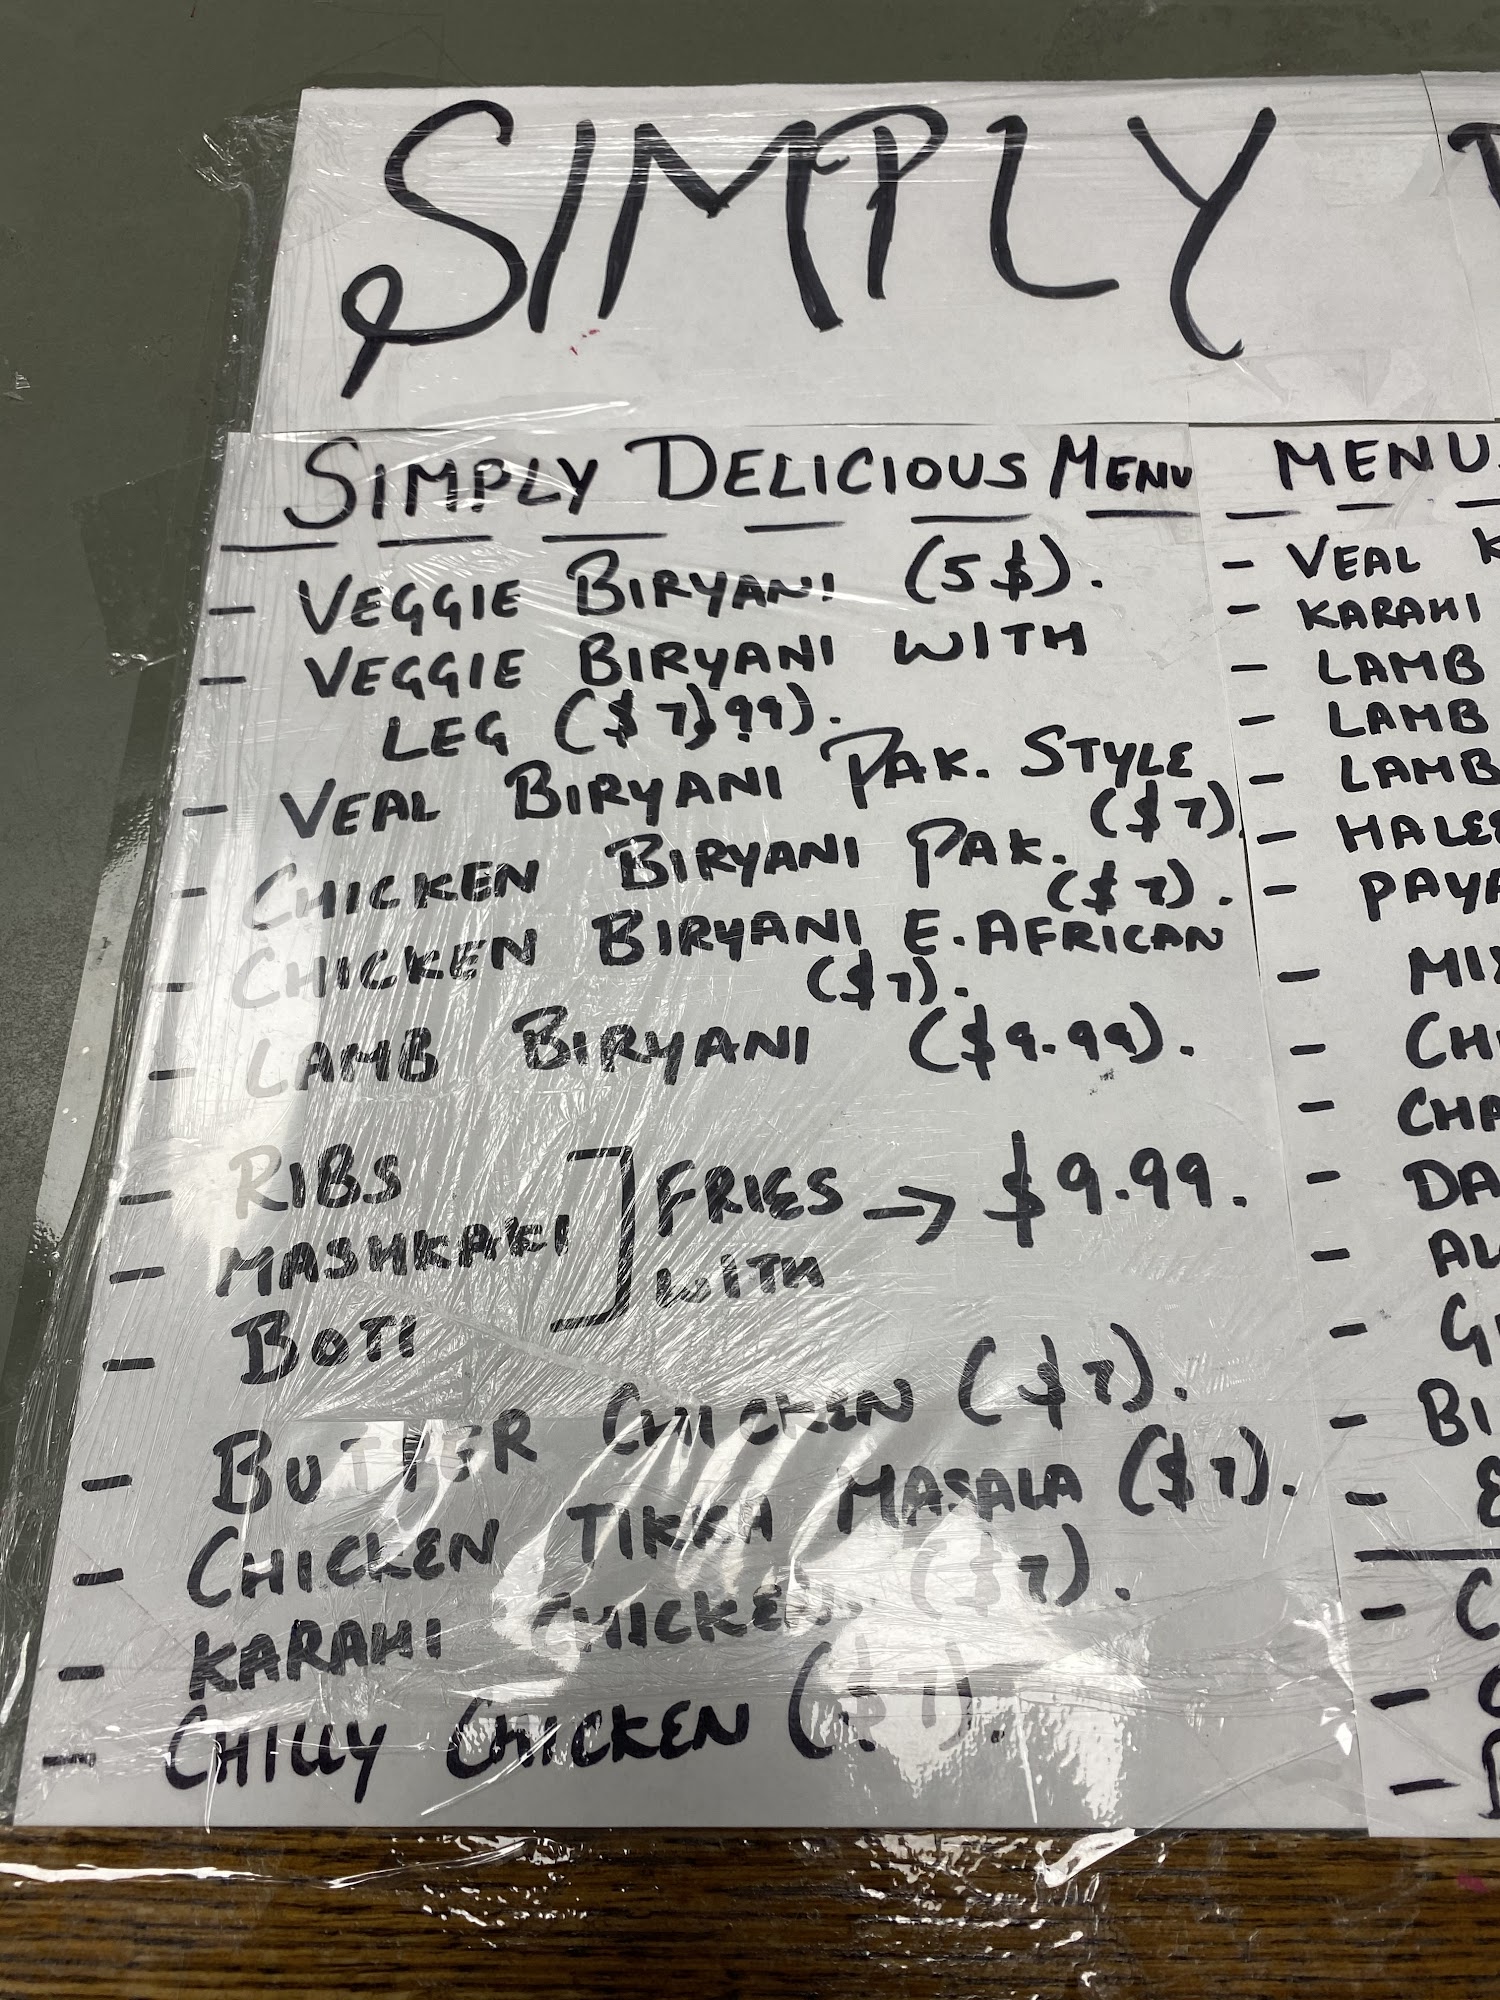 SIMPLY
SIMPLY DELICIOUS MENU
- VEGGIE BIRYANI (5$).
- VEGGIE BIRYANI WITH
LEG ($7.99).
- VEAL BIRYANI PAK. STYLE
($7)
- CHICKEN BIRYANI PAK.
($7).
- CHICKEN BIRYANI E. AFRICAN
($7).
- LAMB BIRYANI ($9.99).
- RIBS
- MASHKAKI
- BOTI
FRIES → $9.99.
WITH
- BUTTER CHICKEN ($7).
- CHICKEN TIKKA MASALA ($7).
- KARAHI CHICKEN. ($7).
- CHILLY CHICKEN ($7).
MENU
- VEAL
- KARAHI
- LAMB
- LAMB
- LAMB